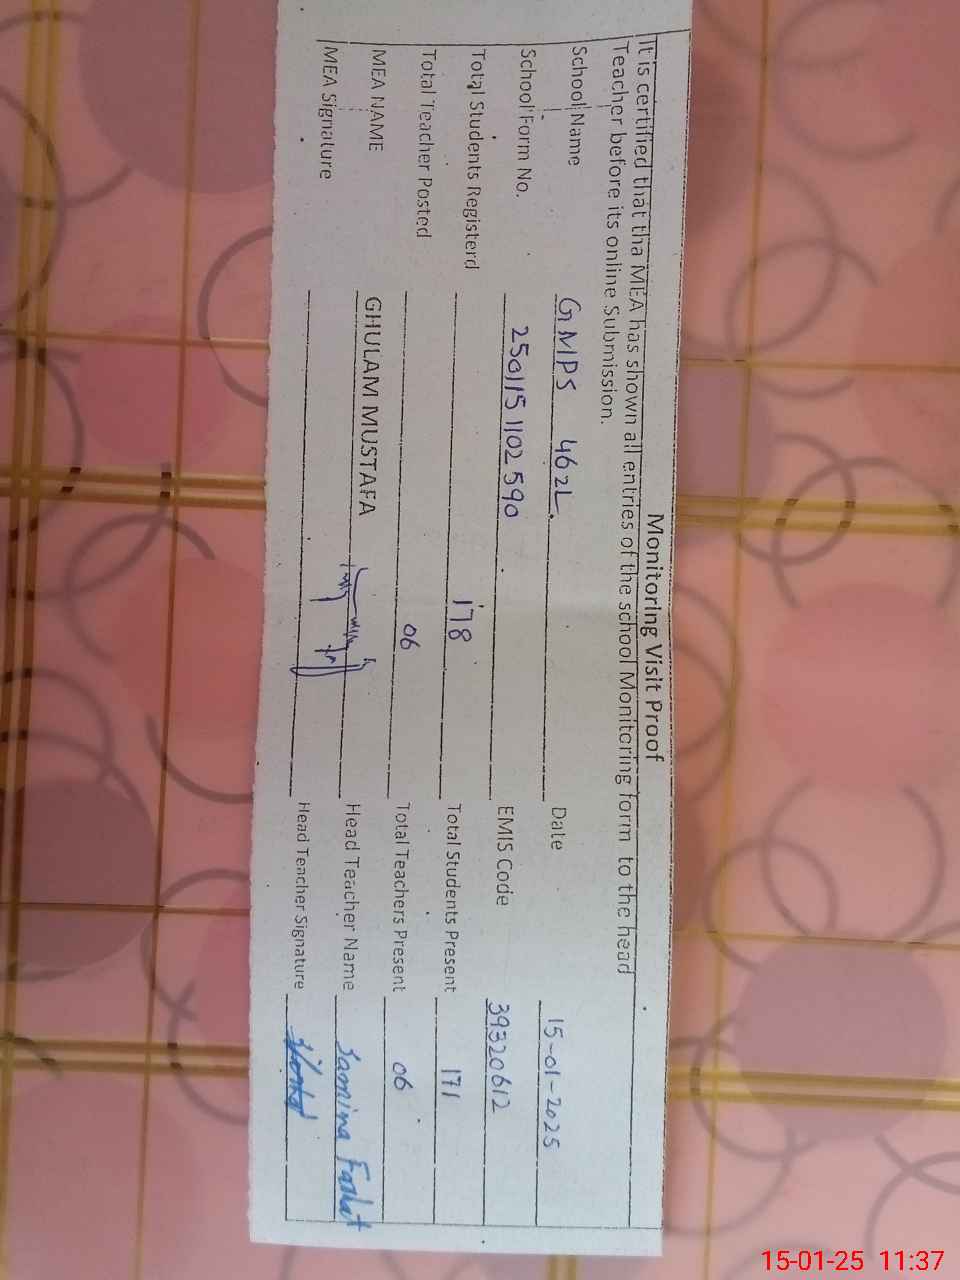 Monitoring Visit Proof
It is certified that tha MEA has shown all entries of the school Monitoring form to the head
Teacher before its online Submission.
School Name GMPS 462L. Date 15-01-2025
School Form No. 2501151102590 EMIS Code 39320612
Total Students Registerd 178 Total Students Present 171
Total Teacher Posted 06 Total Teachers Present 06
MEA NAME GHULAM MUSTAFA Head Teacher Name Samina
MEA Signature Head Teacher Signature
15-01-25 11:37